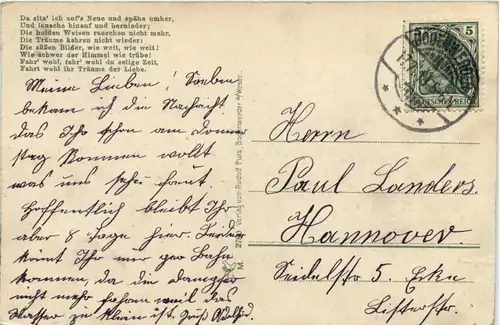 Da sitz' ich auf's Neue und spähe umher,
Und lausche hinauf und hernieder;
Die holden Weisen rauschen nicht mehr,
Die Träume kehren nicht wieder;
Die süßen Bilder, wie weit, wie weit!
Wie schwer der Himmel wie trübe!
Fahr' wohl, fahr' wohl du selige Zeit,
Fahrt wohl ihr Träume der Liebe.
Meine Lieben! Soeben
bekam ich die Nachricht
das Ihr schon am Donner
stag kommen wollt
was uns sehr freut.
Hoffentlich bleibt Ihr
aber 8 Tage hier. Leider
könnt Ihr nur per Bahn
kommen, da die Dampfer
nicht mehr fahren weil das
Wasser zu klein ist. Gruß Adolf
Verlag von Rudolf
5
DEUTSCHES REICH
Herrn
Paul Landers.
Hannover.
Seidelstr 5. Ecke
Listerstr.